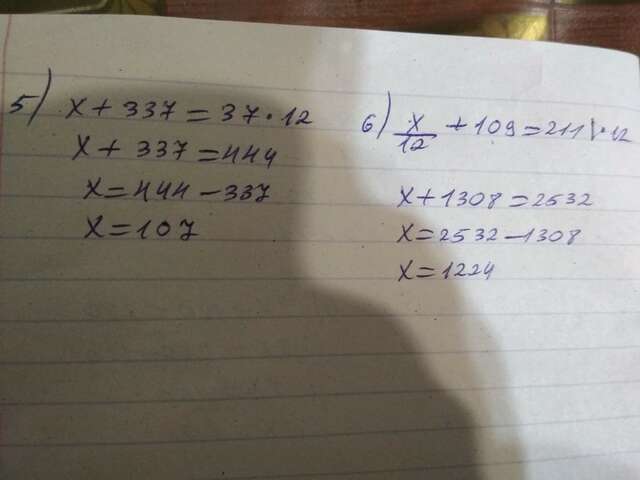 5) x + 337 = 37 · 12
x + 337 = 444
x = 444 - 337
x = 107
6) x/12 + 109 = 211 | · 12
x + 1308 = 2532
x = 2532 - 1308
x = 1224